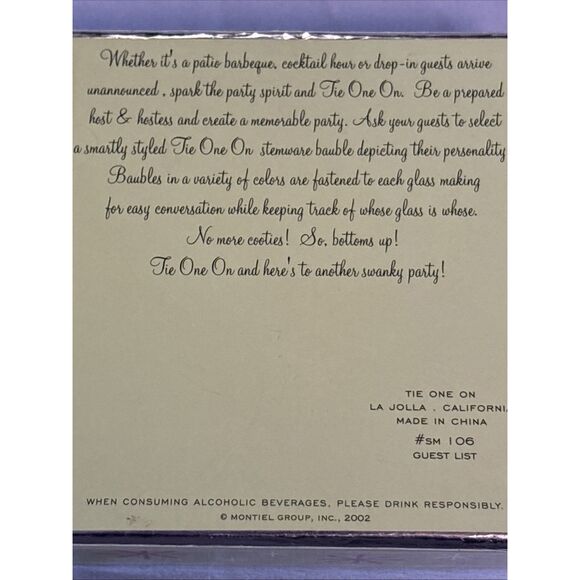 Whether it's a patio barbeque, cocktail hour or drop-in guests arrive
unannounced , spark the party spirit and Tie One On. Be a prepared
host & hostess and create a memorable party. Ask your guests to select
a smartly styled Tie One On stemware bauble depicting their personality
Baubles in a variety of colors are fastened to each glass making
for easy conversation while keeping track of whose glass is whose.
No more cooties! So, bottoms up!
Tie One On and here's to another swanky party!
TIE ONE ON
LA JOLLA . CALIFORNIA
MADE IN CHINA
#SM 106
GUEST LIST
WHEN CONSUMING ALCOHOLIC BEVERAGES, PLEASE DRINK RESPONSIBLY.
© MONTIEL GROUP, INC., 2002